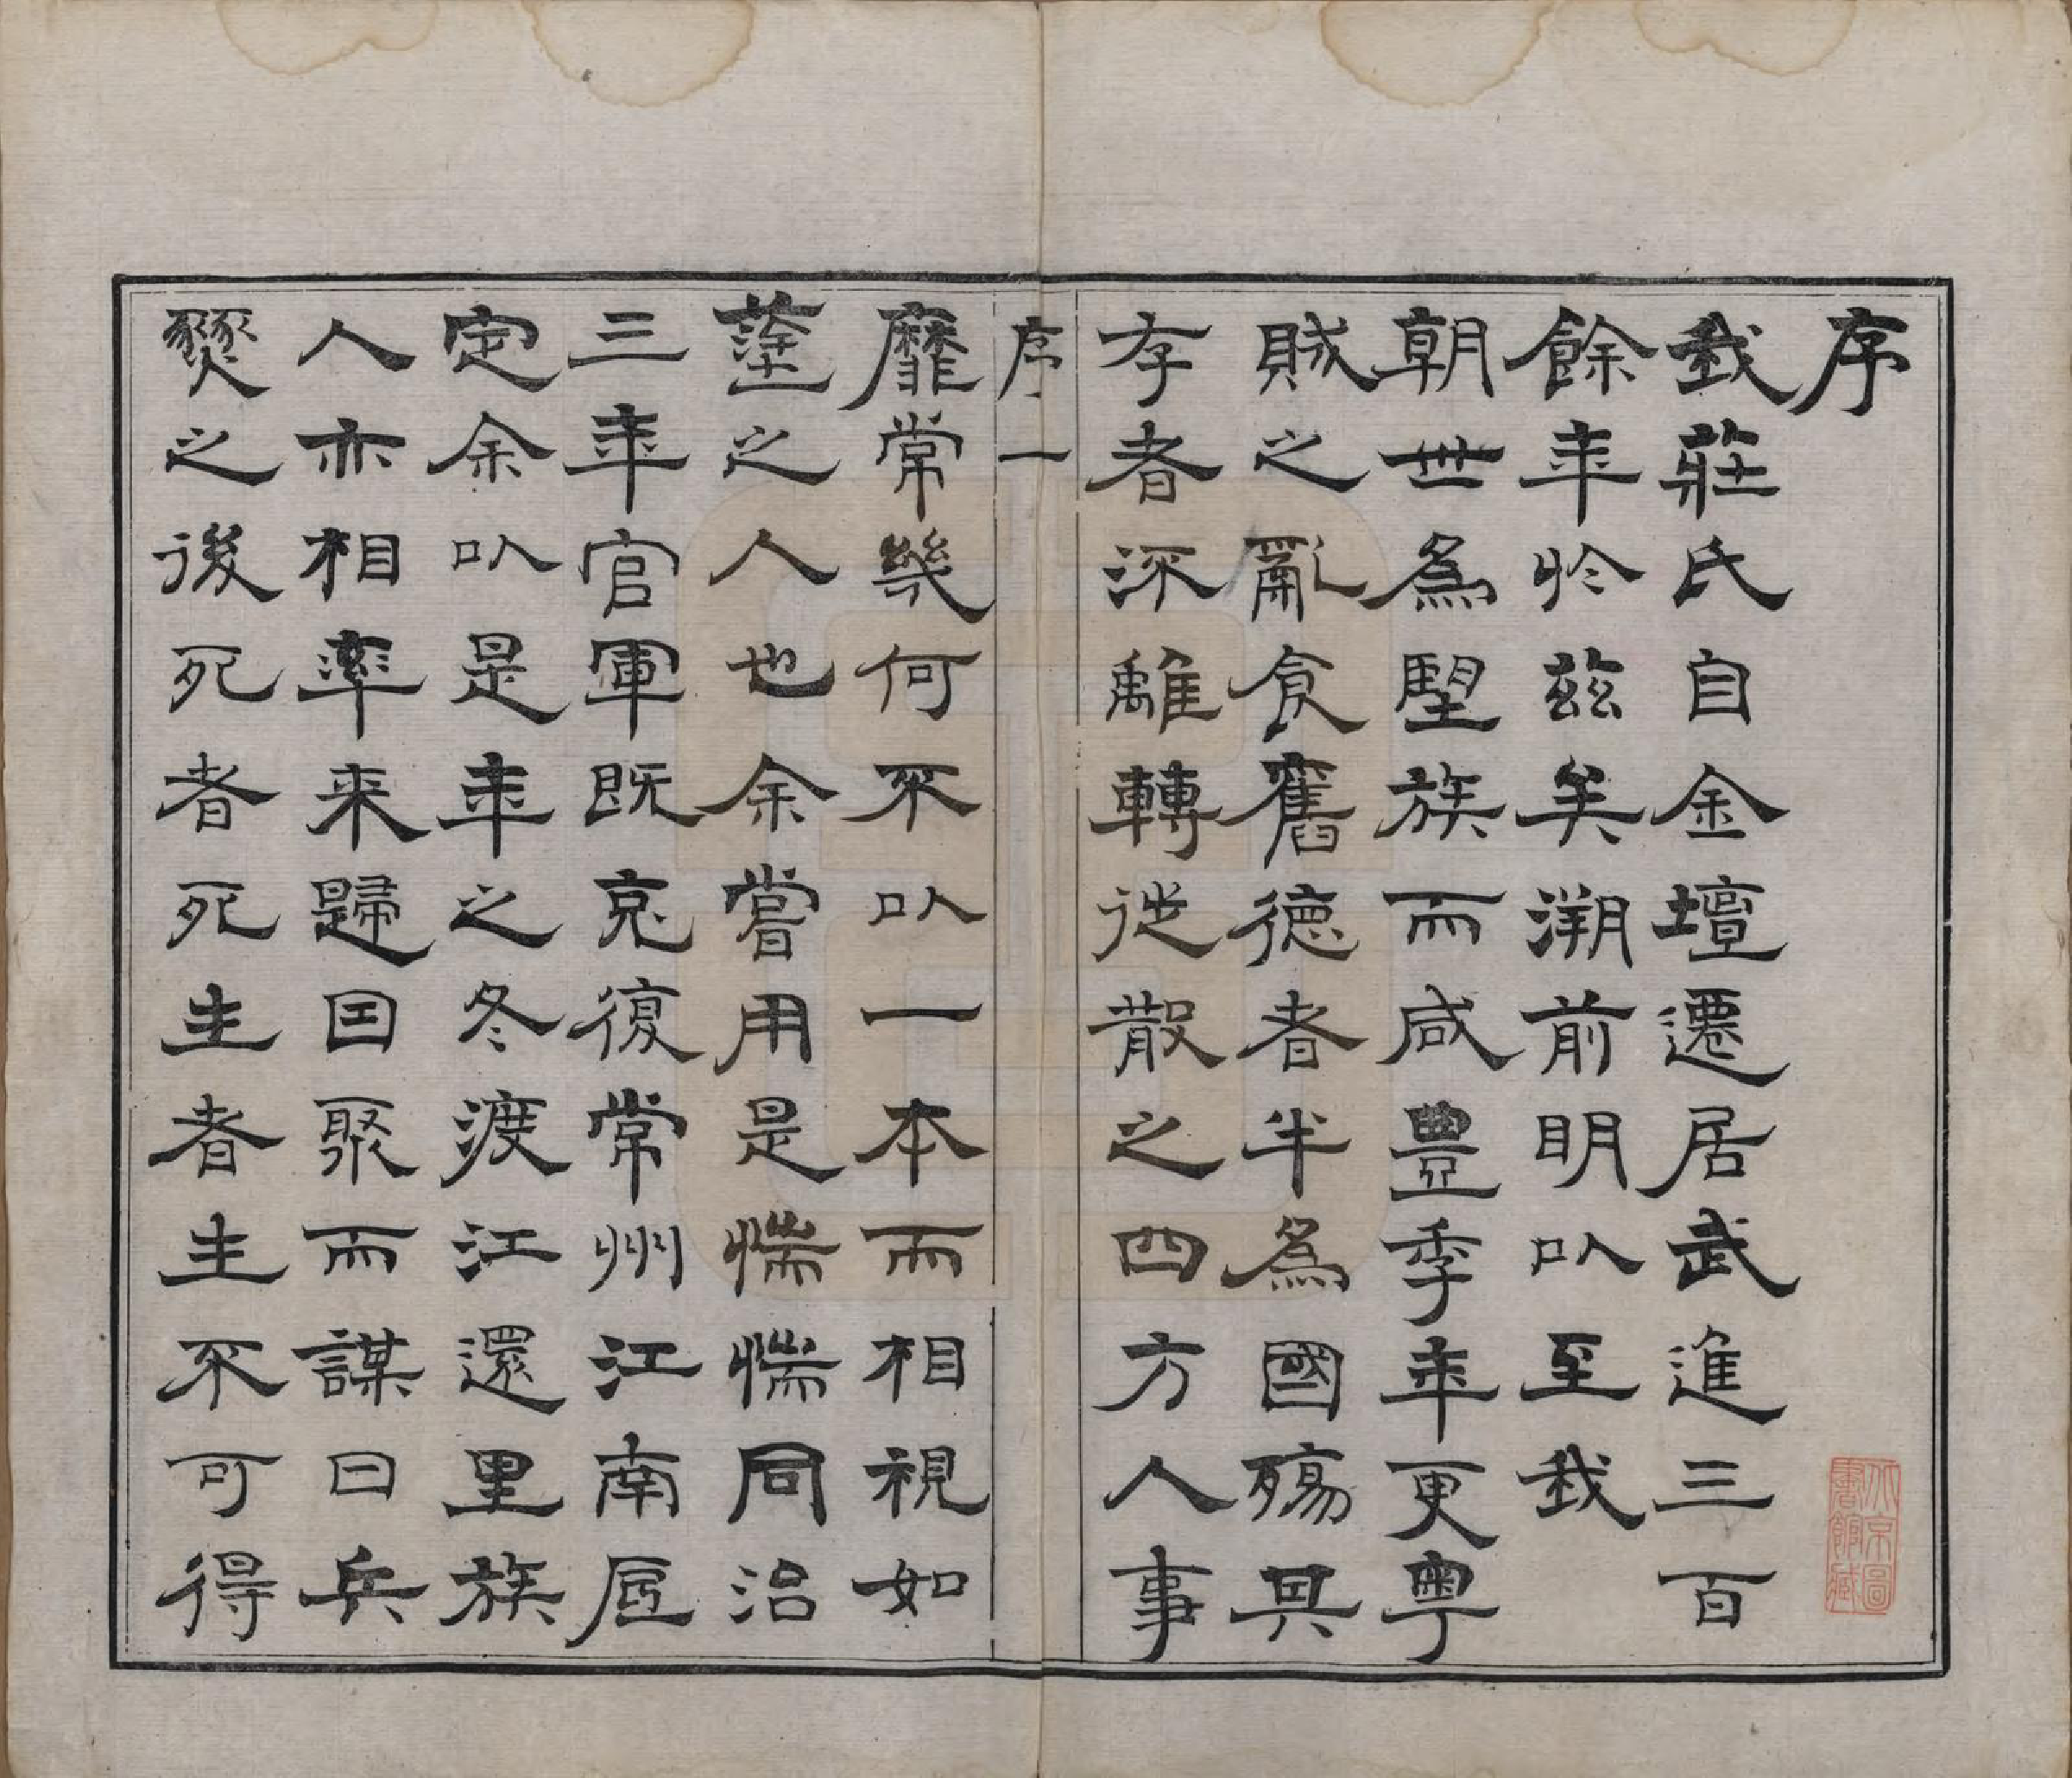 序
我莊氏自金壇遷居武進三百
餘年於茲矣溯前明以至我
朝世為望族而咸豐季年更粵
賊之亂食舊德者半為國殤其
存者流離轉徙散之四方人事
序一
靡常幾何不以一本而相視如
塗之人也余嘗用是惴惴同治
三年官軍既克復常州江南底
定余以是年之冬渡江還里族
人亦相率来歸因聚而謀曰兵
燹之後死者死生者生不可得
北京圖
書館藏